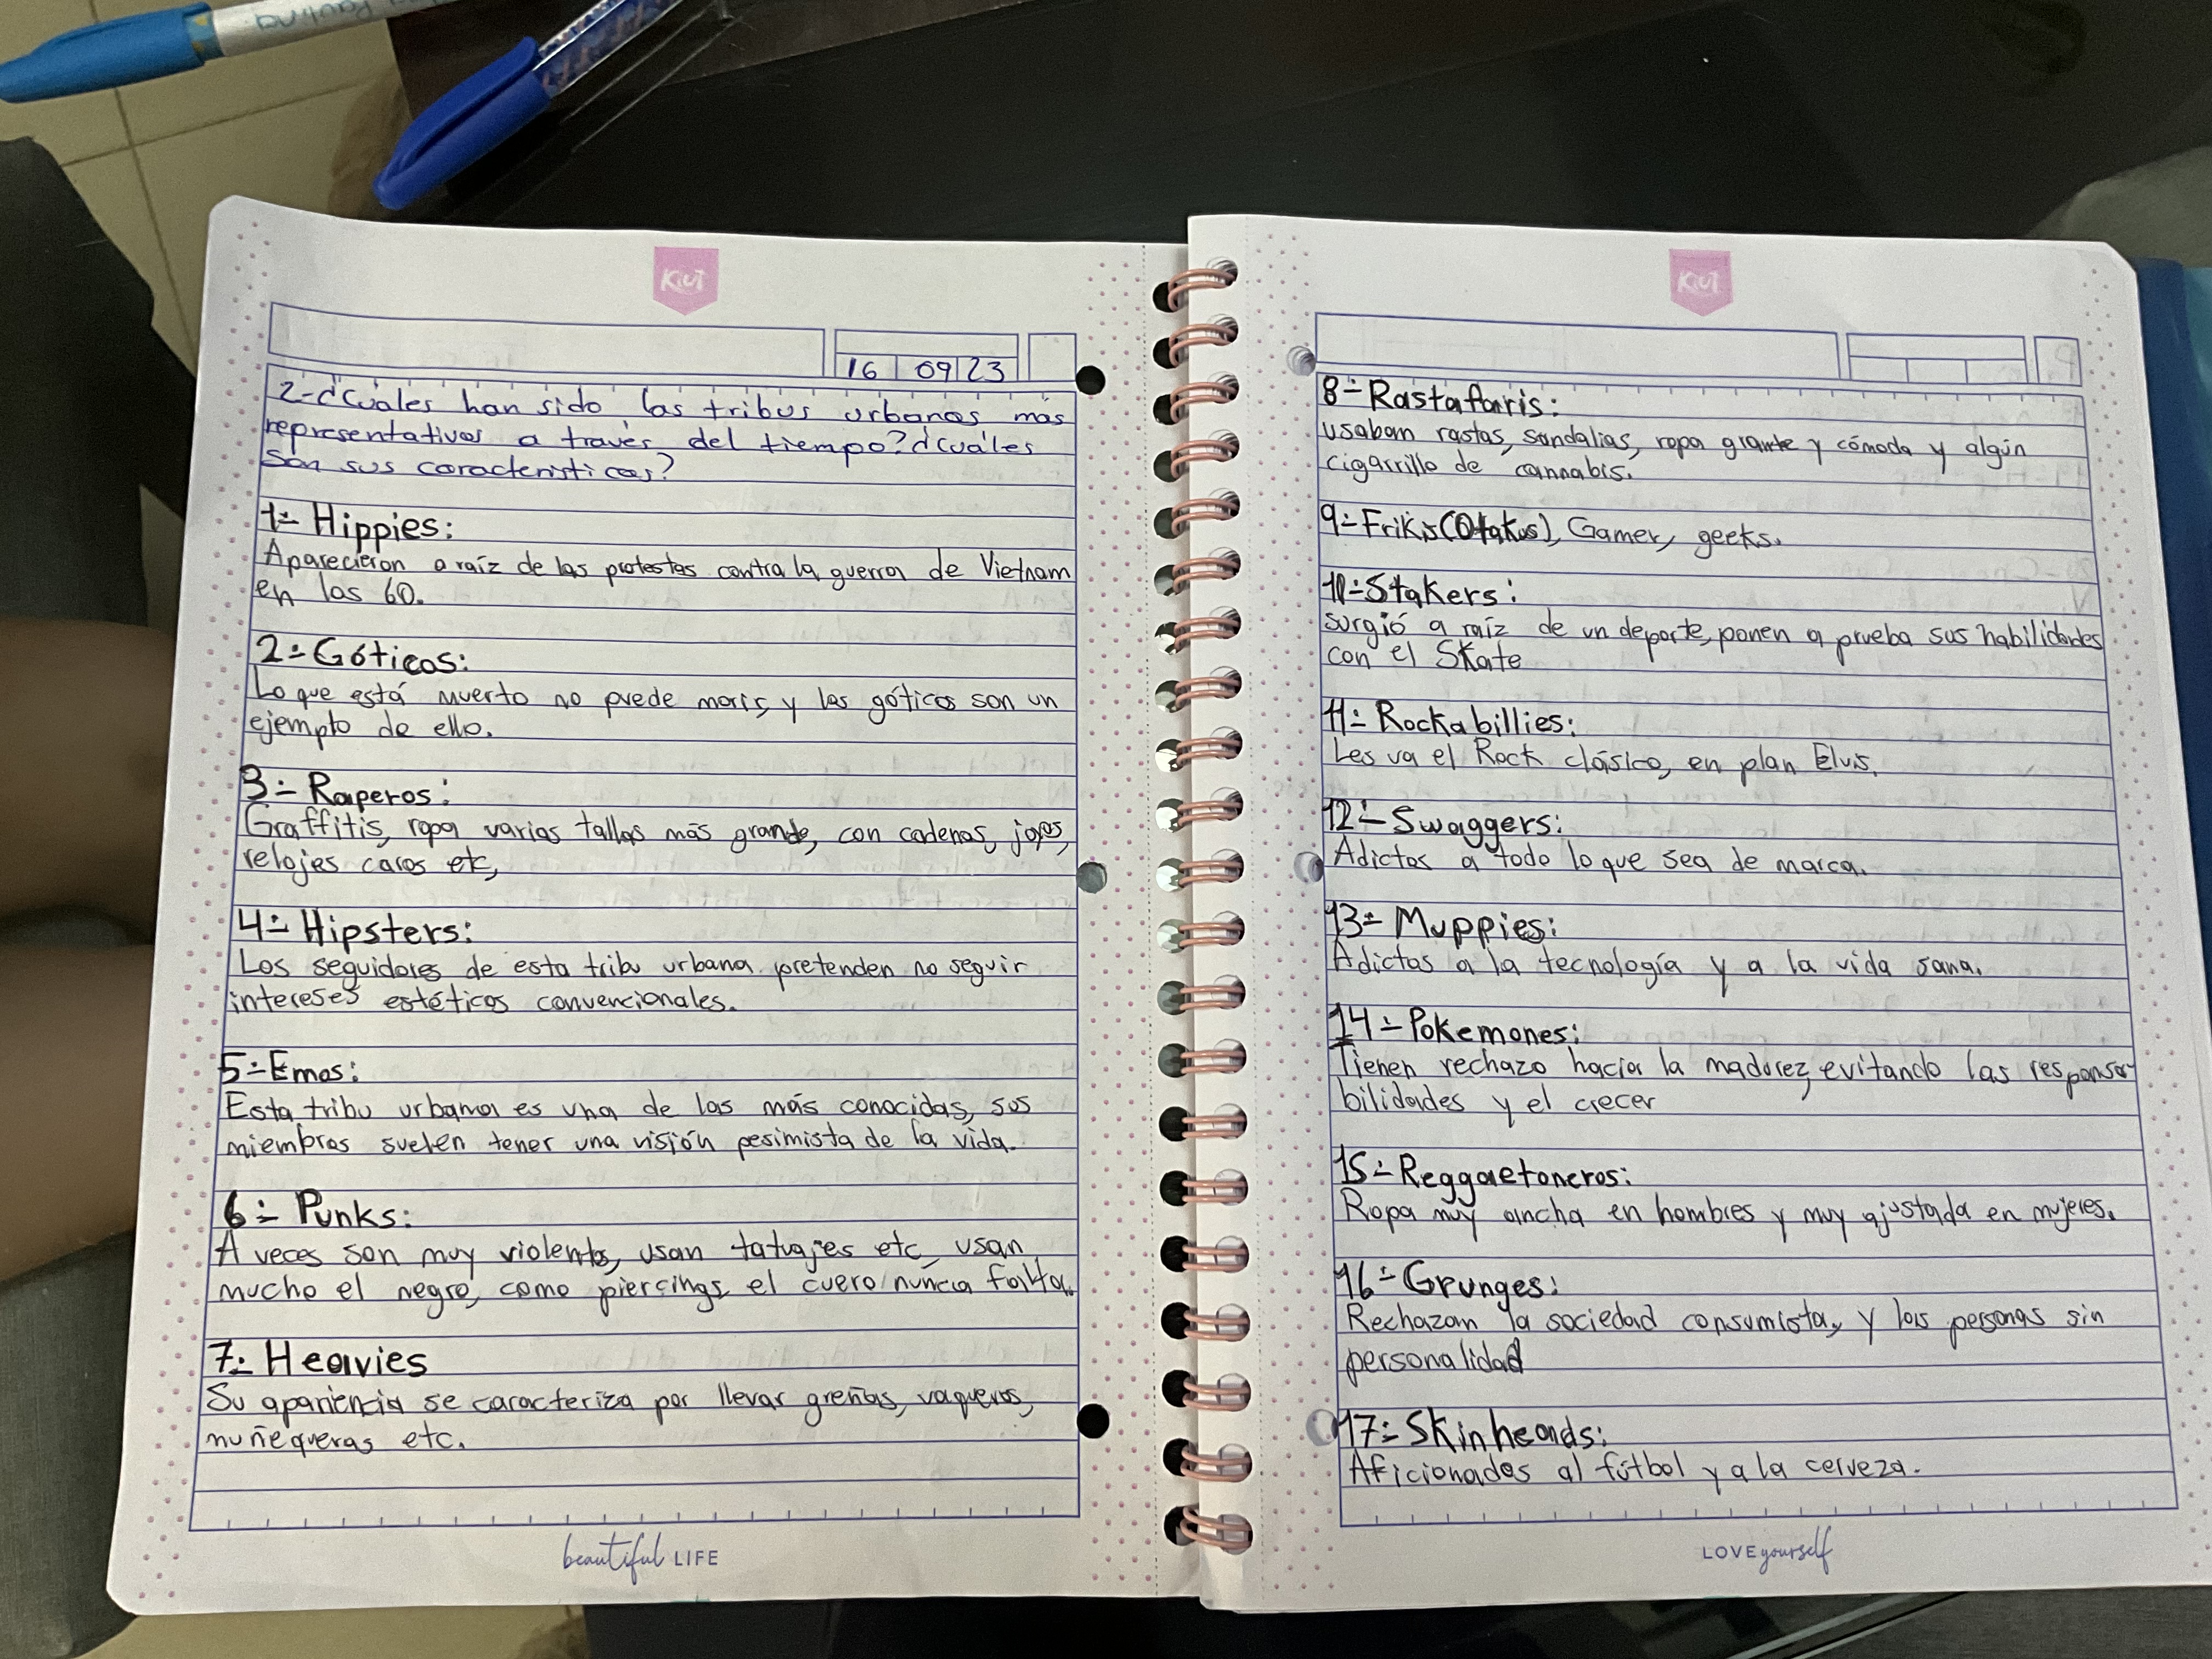 Paulina
Kiut
16 09 23
2-¿Cuáles han sido las tribus urbanas más
representativas a través del tiempo? ¿cuáles
son sus características?
1- Hippies:
Aparecieron a raíz de las protestas contra la guerra de Vietnam
en los 60.
2- Góticos:
Lo que está muerto no puede morir, y los góticos son un
ejemplo de ello.
3- Raperos:
Graffitis, ropa varias tallas más grande, con cadenas, joyas,
relojes caros etc,
4- Hipsters:
Los seguidores de esta tribu urbana pretenden no seguir
intereses estéticos convencionales.
5- Emos:
Esta tribu urbana es una de las más conocidas, sus
miembros suelen tener una visión pesimista de la vida.
6- Punks:
A veces son muy violentos, usan tatuajes etc, usan
mucho el negro, como piercings, el cuero nunca falta.
7- Heavies
Su apariencia se caracteriza por llevar greñas, vaqueros,
muñequeras etc.
beautiful LIFE
Kiut
8- Rastafaris:
usaban rastas, sandalias, ropa grante y cómoda y algún
cigarrillo de cannabis.
9- Frikis (Otakus), Gamer, geeks.
10- Stakers:
surgió a raíz de un deporte, ponen a prueba sus habilidades
con el Skate
11- Rockabillies:
Les va el Rock clásico, en plan Elvis.
12- Swaggers:
Adictos a todo lo que sea de marca.
13- Muppies:
Adictas a la tecnología y a la vida sana.
14- Pokemones:
Tienen rechazo hacia la madurez, evitando las responsa-
bilidades y el crecer
15- Reggaetoneros:
Ropa muy ancha en hombres y muy ajustada en mujeres.
16- Grunges:
Rechazan la sociedad consumista, y las personas sin
personalidad
17- Skinheads:
Aficionados al fútbol y a la cerveza.
LOVE yourself